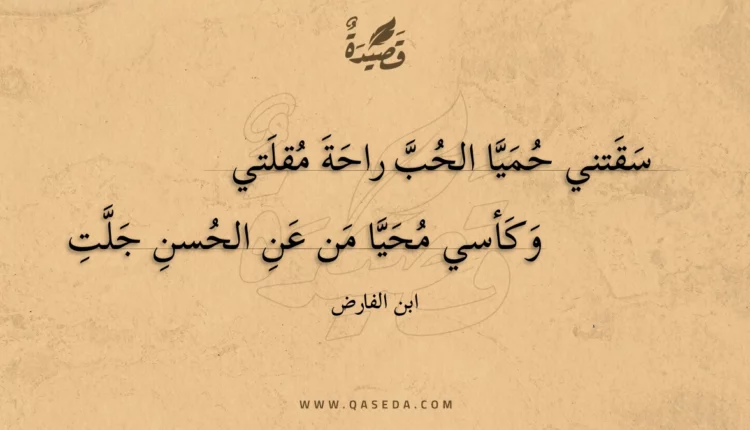 قَصِيْدَةٌ
سَقَتني حُمَيَّا الحُبَّ راحَةَ مُقلَتي
وَكَأسي مُحَيَّا مَن عَنِ الحُسنِ جَلَّتِ
ابن الفارض
WWW.QASEDA.COM